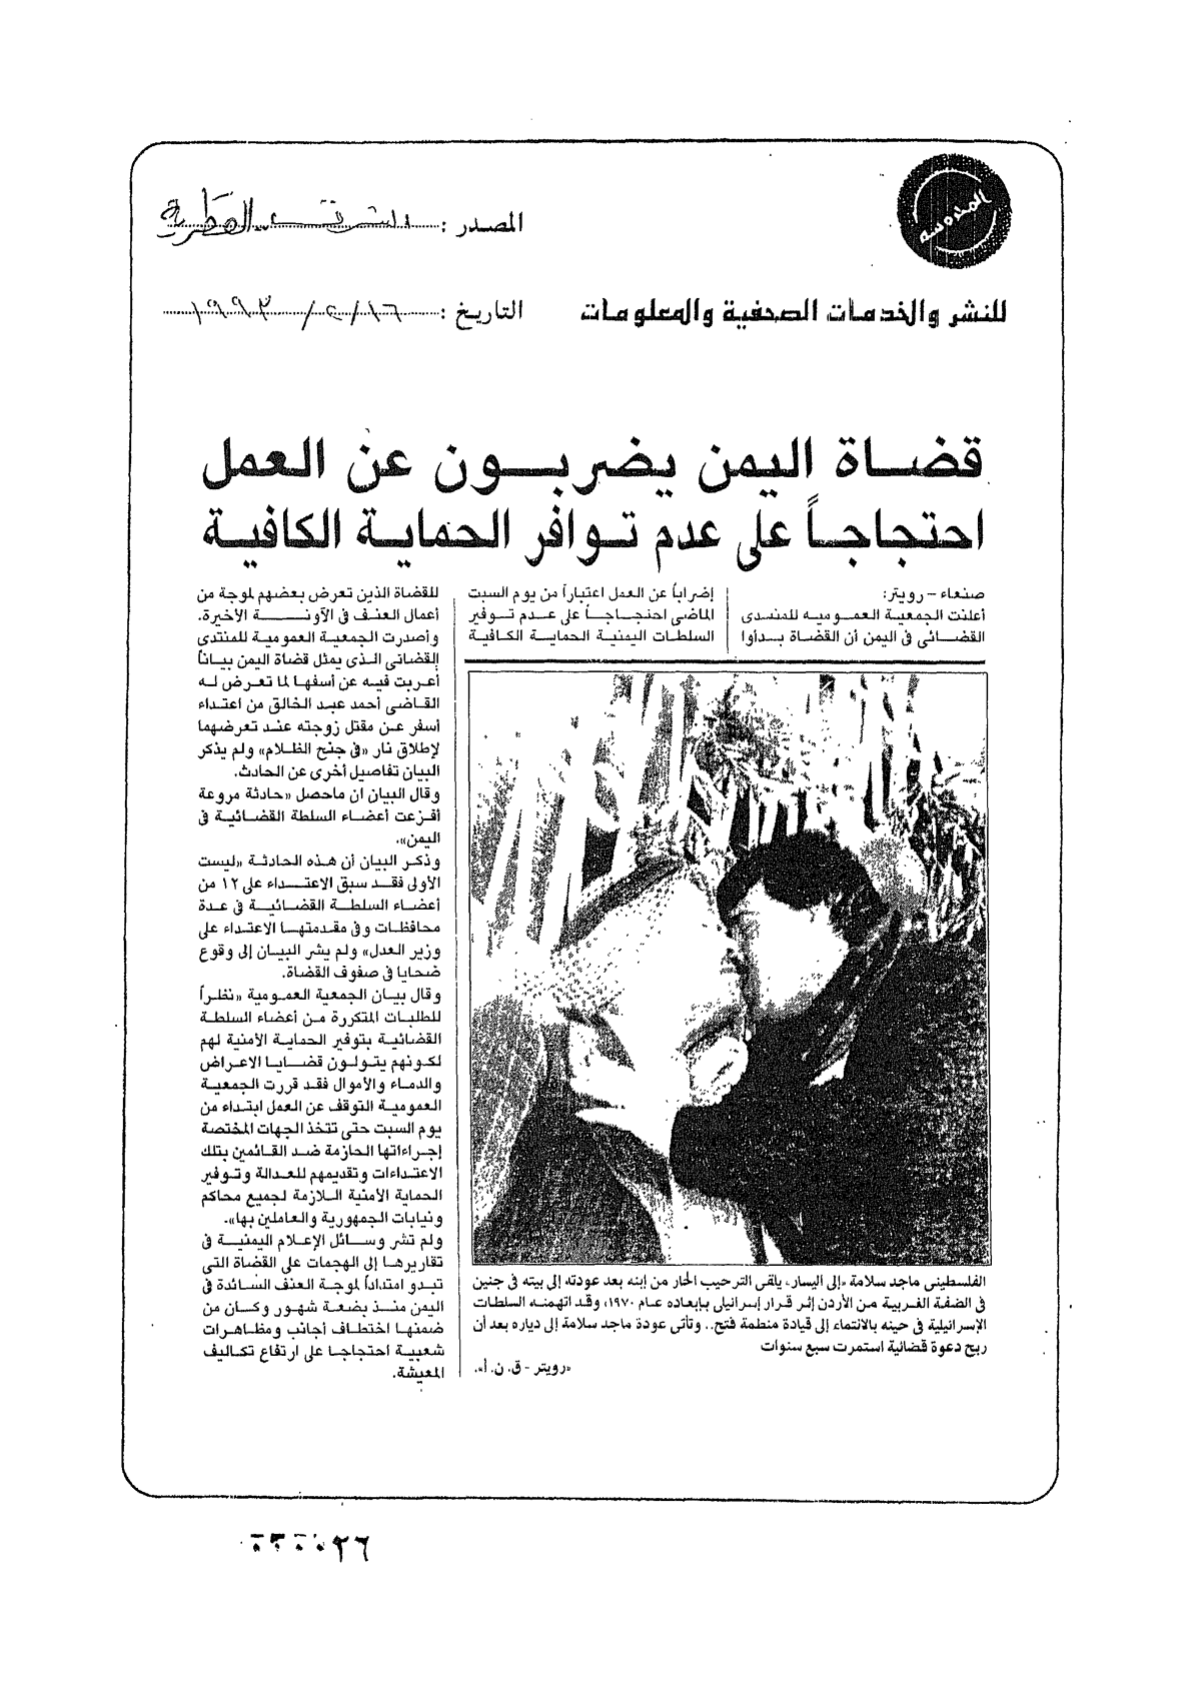 المحروسة
المصدر : الشرق القطرية
للنشر والخدمات الصحفية والمعلومات
التاريخ : ١٦/٢/١٩٩٣
قضاة اليمن يضربون عن العمل
احتجاجاً على عدم توافر الحماية الكافية
صنعاء – رويتر:
أعلنت الجمعية العموميه للمنتدى
القضائى فى اليمن أن القضاة بدأوا
إضراباً عن العمل اعتباراً من يوم السبت
الماضى احتجاجاً على عدم توفير
السلطات اليمنية الحماية الكافية
للقضاة الذين تعرض بعضهم لموجة من
أعمال العنف فى الآونة الأخيرة.
وأصدرت الجمعية العمومية للمنتدى
القضائى الذى يمثل قضاة اليمن بياناً
أعربت فيه عن أسفها لما تعرض له
القاضى أحمد عبد الخالق من اعتداء
أسفر عن مقتل زوجته عند تعرضهما
لإطلاق نار «فى جنح الظلام» ولم يذكر
البيان تفاصيل أخرى عن الحادث.
وقال البيان ان ماحصل «حادثة مروعة
أفزعت أعضاء السلطة القضائية فى
اليمن».
وذكر البيان أن هذه الحادثة «ليست
الأولى فقد سبق الاعتداء على ١٢ من
أعضاء السلطة القضائية فى عدة
محافظات وفى مقدمتها الاعتداء على
وزير العدل» ولم يشر البيان إلى وقوع
ضحايا فى صفوف القضاة.
وقال بيان الجمعية العمومية «نظراً
للطلبات المتكررة من أعضاء السلطة
القضائية بتوفير الحماية الأمنية لهم
لكونهم يتولون قضايا الاعراض
والدماء والأموال فقد قررت الجمعية
العمومية التوقف عن العمل ابتداء من
يوم السبت حتى تتخذ الجهات المختصة
إجراءاتها الحازمة ضد القائمين بتلك
الاعتداءات وتقديمهم للعدالة وتوفير
الحماية الأمنية اللازمة لجميع محاكم
ونيابات الجمهورية والعاملين بها».
ولم تشر وسائل الإعلام اليمنية فى
تقاريرها إلى الهجمات على القضاة التى
تبدو امتداداً لموجة العنف السائدة فى
اليمن منذ بضعة شهور وكان من
ضمنها اختطاف أجانب ومظاهرات
شعبية احتجاجا على ارتفاع تكاليف
المعيشة.
الفلسطينى ماجد سلامة «إلى اليسار» يلقى الترحيب الحار من إبنه بعد عودته إلى بيته فى جنين
فى الضفة الغربية من الأردن إثر قرار إسرائيلى بإبعاده عام ١٩٧٠، وقد اتهمته السلطات
الإسرائيلية فى حينه بالانتماء إلى قيادة منظمة فتح.. وتأتى عودة ماجد سلامة إلى دياره بعد أن
ربح دعوة قضائية استمرت سبع سنوات
«رويتر - ق. ن. أ».